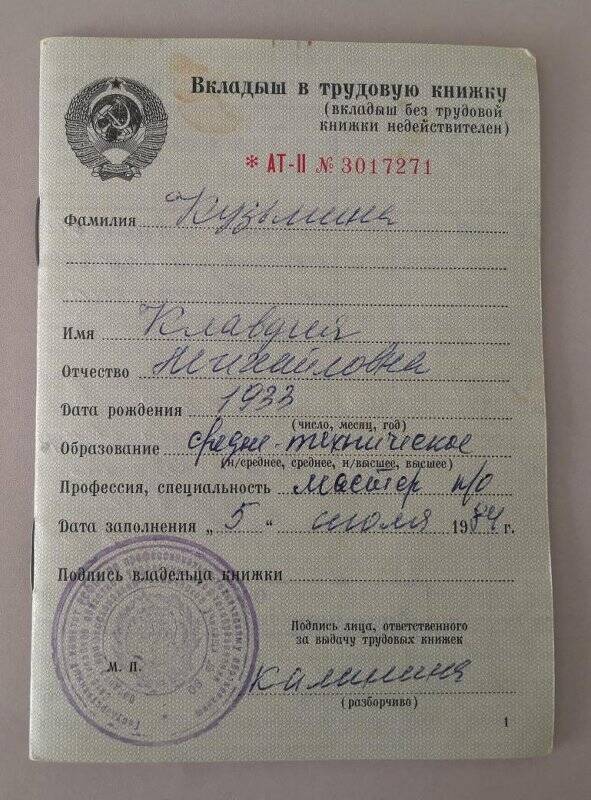 Вкладыш в трудовую книжку
(вкладыш без трудовой
книжки недействителен)
* АТ-II № 3017271
Фамилия Кузьмина
Имя Клавдия
Отчество Михайловна
Дата рождения 1933
(число, месяц, год)
Образование средне-техническое
(н/среднее, среднее, н/высшее, высшее)
Профессия, специальность мастер п/о
Дата заполнения „5“ июля 1984 г.
Подпись владельца книжки
Подпись лица, ответственного
за выдачу трудовых книжек
М. П.
Калинина
(разборчиво)
1